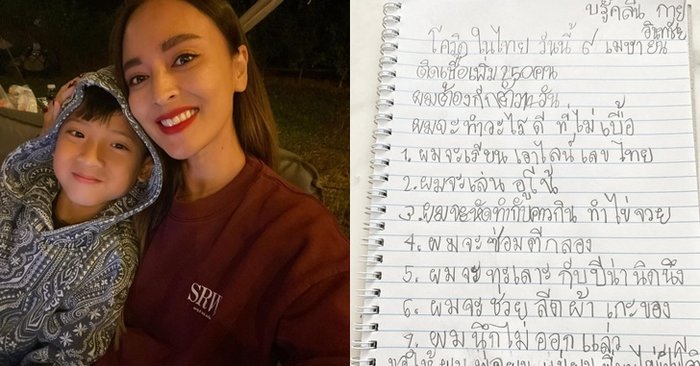 SRW
บรู๊คลิน กาย
โควิด ในไทย วันนี้ ๙ เมษายน
ติดเชื้อเพิ่ม 250คน
ผมต้องกักตัว วัน
ผมจะ ทำอะไร ดี ที่ไม่เบื่อ
1. ผมจะเรียน เลข ไทย
2. ผมจะเล่น อูโน่
3. ผมจะหัดทำกับคาวกิน ทำไข่
4. ผมจะ ซ้อมตีกลอง
5. ผมจะ ทะเลาะ กับปีน่านิดนึง
6. ผมจะ ช่วย ลีดผ้า
ผมนึกไม่ ออกแล่ว